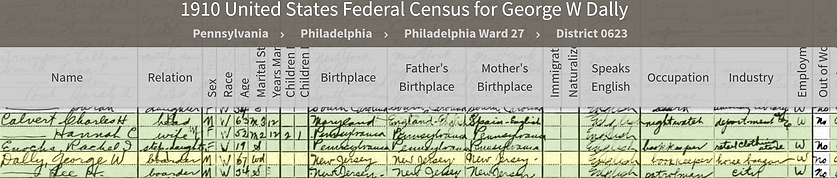 1910 United States Federal Census for George W Dally
Pennsylvania › Philadelphia › Philadelphia Ward 27 › District 0623
Name Relation Sex Race Age Marital S Years Mar Children Children Birthplace Father's Birthplace Mother's Birthplace Immigrat Naturaliz Speaks English Occupation Industry Employm Out of Wo
daughter
Calvert Charles H head M W 65 M2 12 Maryland England-English Spain-English English nightwatch department W No
Hannah C wife F W 52 M2 12 2 1 Pennsylvania Pennsylvania Pennsylvania English
Enochs, Rachel I step-daughter F W 19 S Pennsylvania Pennsylvania Pennsylvania English bookkeeper retail W No
Dally George W boarder M W 67 wd New Jersey New Jersey New Jersey English bookkeeper W No
boarder M W 34 S New Jersey New Jersey New Jersey English patrolman city W No